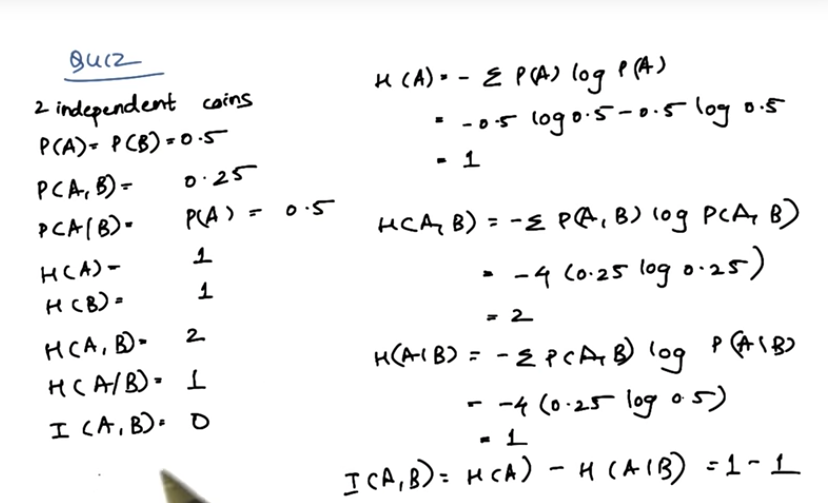 Quiz
2 independent coins
P(A) = P(B) = 0.5
P(A, B) = 0.25
P(A|B) = P(A) = 0.5
H(A) = 1
H(B) = 1
H(A, B) = 2
H(A/B) = 1
I(A, B) = 0
H(A) = - Σ P(A) log P(A)
= -0.5 log 0.5 - 0.5 log 0.5
= 1
H(A, B) = -Σ P(A, B) log P(A, B)
= -4 (0.25 log 0.25)
= 2
H(A|B) = -Σ P(A, B) log P(A|B)
= -4 (0.25 log 0.5)
= 1
I(A, B) = H(A) - H(A|B) = 1 - 1